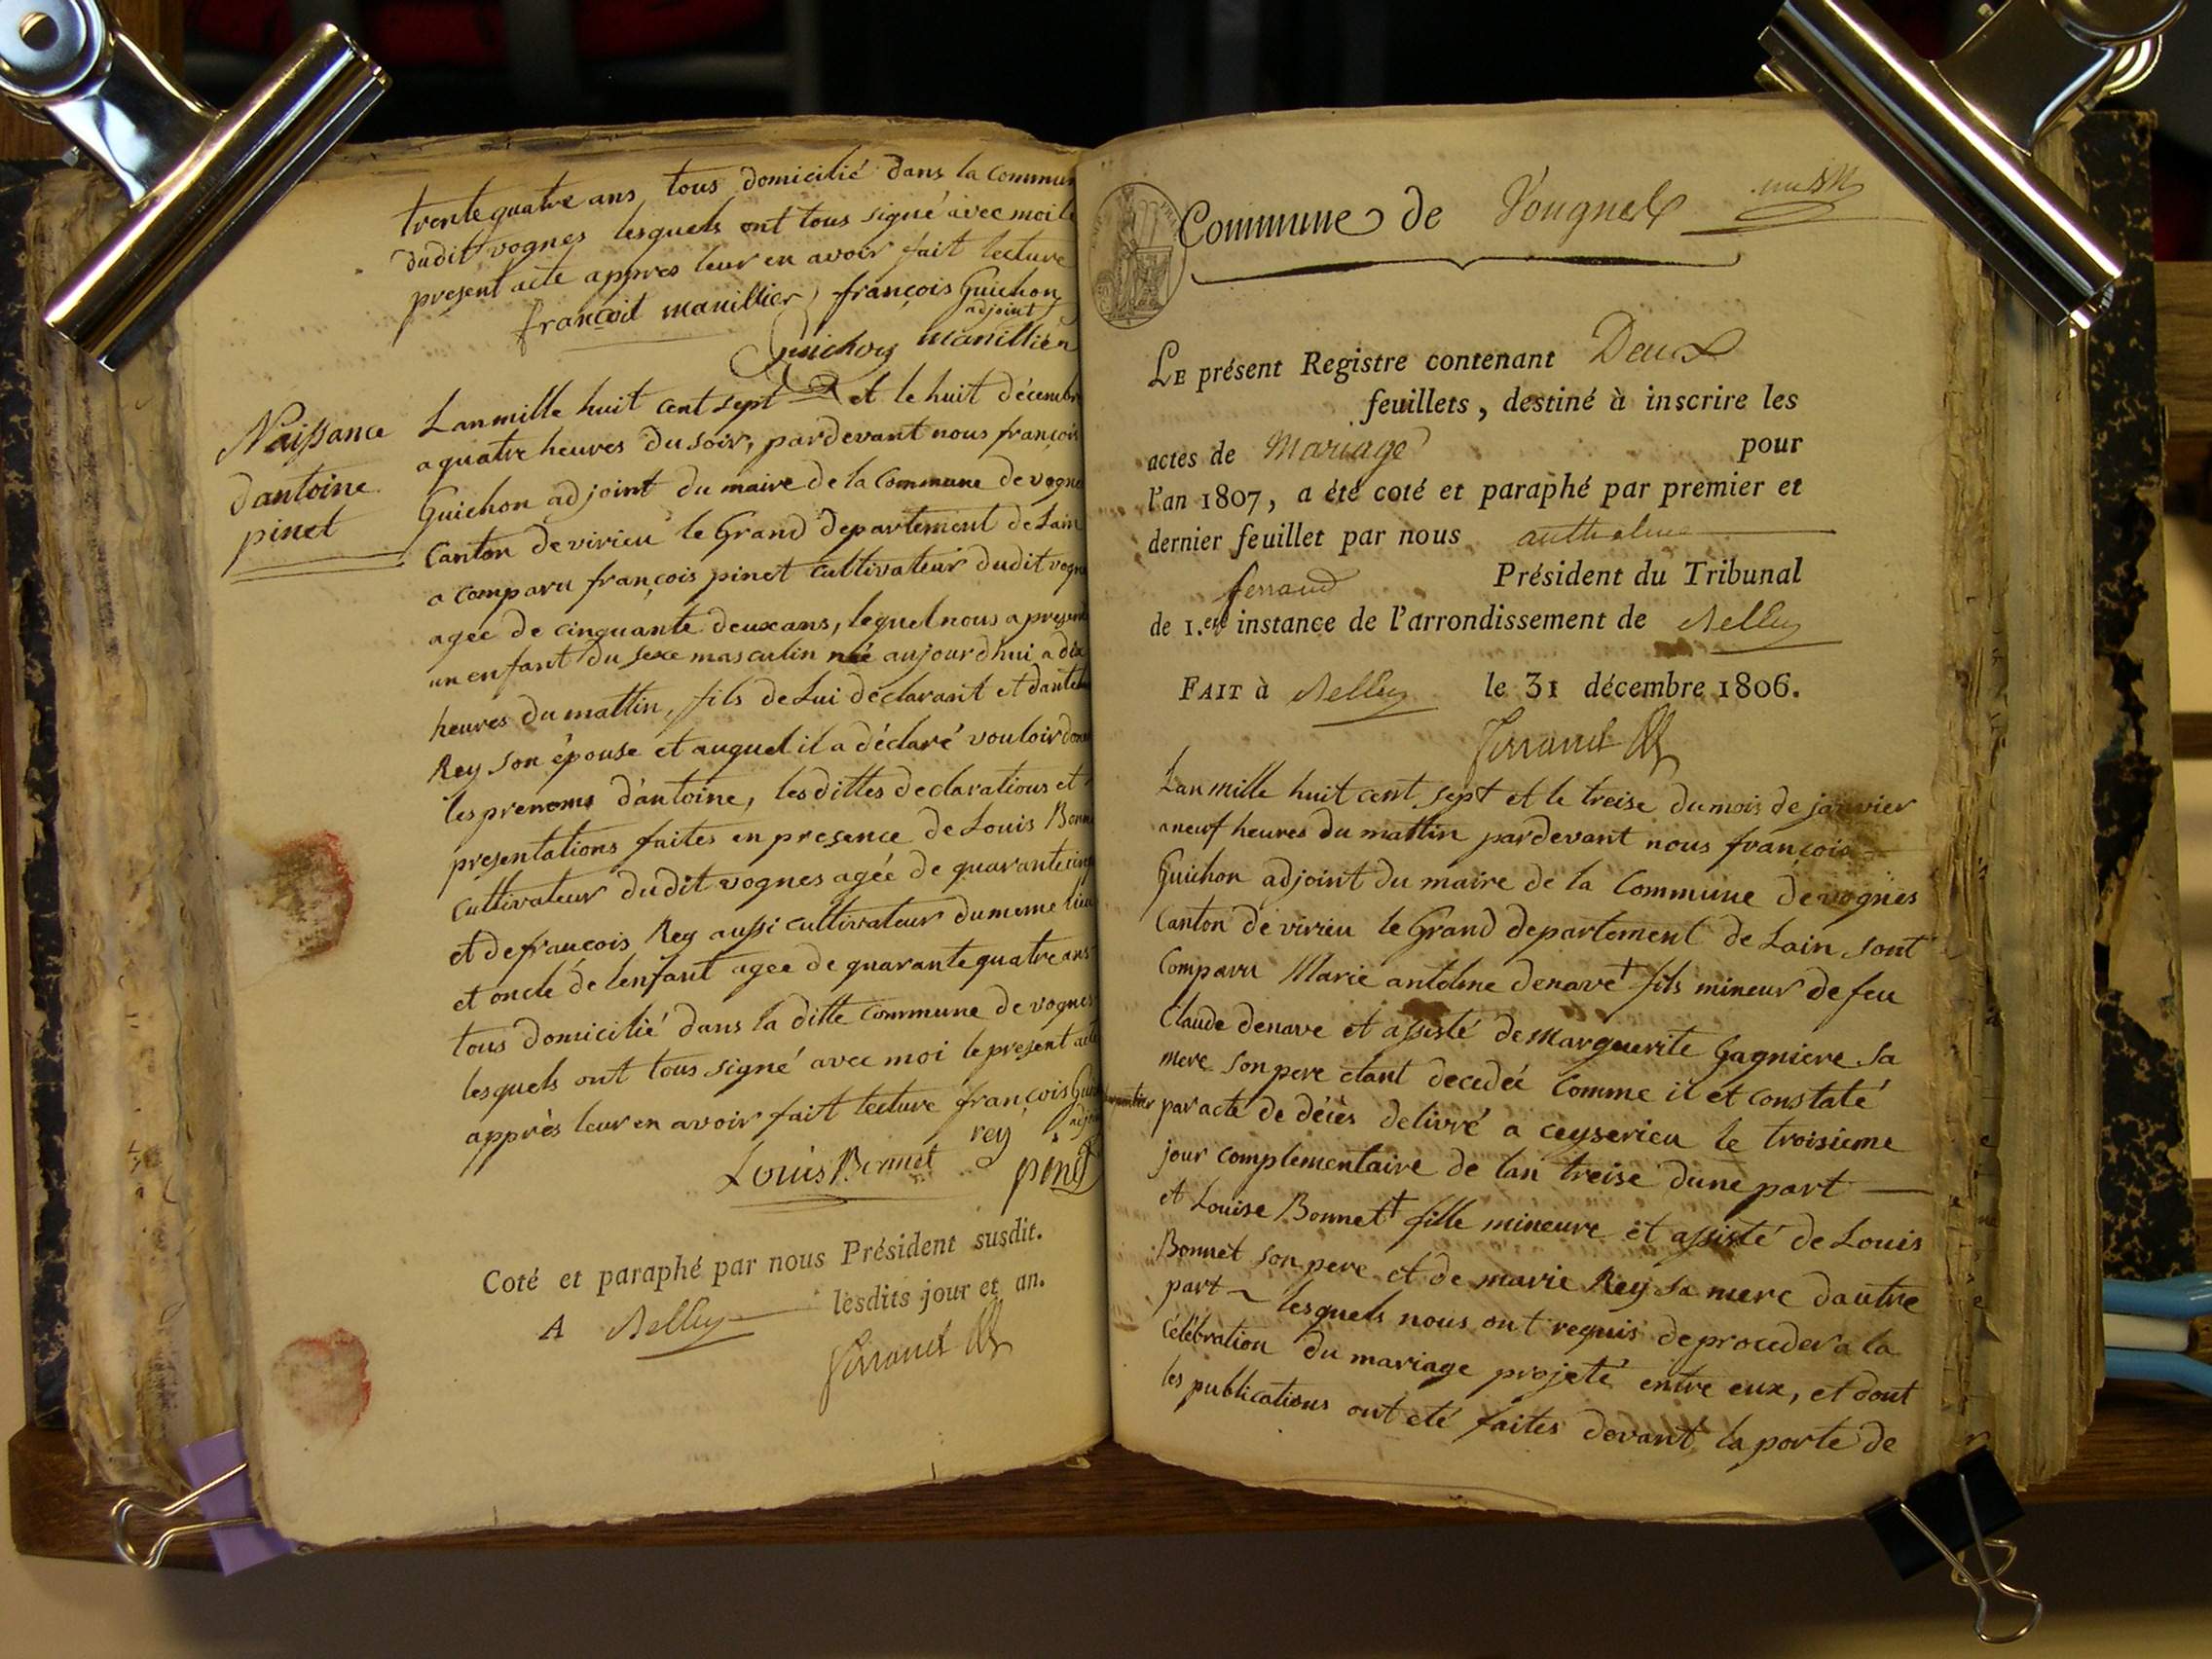 trente quatre ans, tous domicilié dans la commun
dudit vognes lesquels ont tous signé avec moi le
present acte appres leur en avoir fait lecture
françoit manillier françois Guichon
adjoint
Guichon manillier
Naissance
dantoine
pinet
Lan mille huit cent sept et le huit décembr
a quatre heures du soir, pardevant nous françois
Guichon adjoint du maire de la Commune de vogne
Canton de virieu le Grand departement de Lain
a comparu françois pinet cultivateur dudit vogn
agée de cinquante deux ans, lequel nous a present
un enfant du sexe masculin née aujourdhui a dix
heures du mattin, fils de Lui déclarant et
Rey son épouse et auquel il a déclaré vouloir don
les prenoms d'antoine, les dittes declarations et
presentations faites en presence de Louis Bonn
cultivateur dudit vognes agée de quarante cinq
et de francois Rey aussi cultivateur du meme lieu
et oncle de lenfant agee de quarante quatre ans
tous domicilié dans la ditte commune de vognes
lesquels ont tous signé avec moi le present acte
appres leur en avoir fait lecture françois Gui
adj
Louis Bonnet rey pinet
Coté et paraphé par nous Président susdit.
A Belley lesdits jour et an.
Ferrand
Commune de Vougnes
LE présent Registre contenant Deux
feuillets, destiné à inscrire les
actes de Mariage pour
l'an 1807, a été coté et paraphé par premier et
dernier feuillet par nous anthelme
ferrand Président du Tribunal
de 1.ere instance de l'arrondissement de Belley
FAIT à Belley le 31 décembre 1806.
Ferrand
Lan mille huit cent sept et le treise du mois de janvier
a neuf heures du mattin pardevant nous françois
Guichon adjoint du maire de la Commune de vognes
Canton de virieu le Grand departement de Lain sont
Comparu Marie antelme denave † fils mineur de feu
Claude denave et assisté de Marguerite Gagniere sa
mere son pere etant decedée comme il et constaté
par acte de décès delivré a ceyserieu le troisieme
jour complementaire de lan treise dune part
et Louise Bonnet † fille mineure et assisté de Louis
Bonnet son pere et de marie Rey sa mere dautre
part ~ lesquels nous ont requis de proceder a la
Celébration du mariage projeté entre eux, et dont
les publications ont eté faites devant la porte de